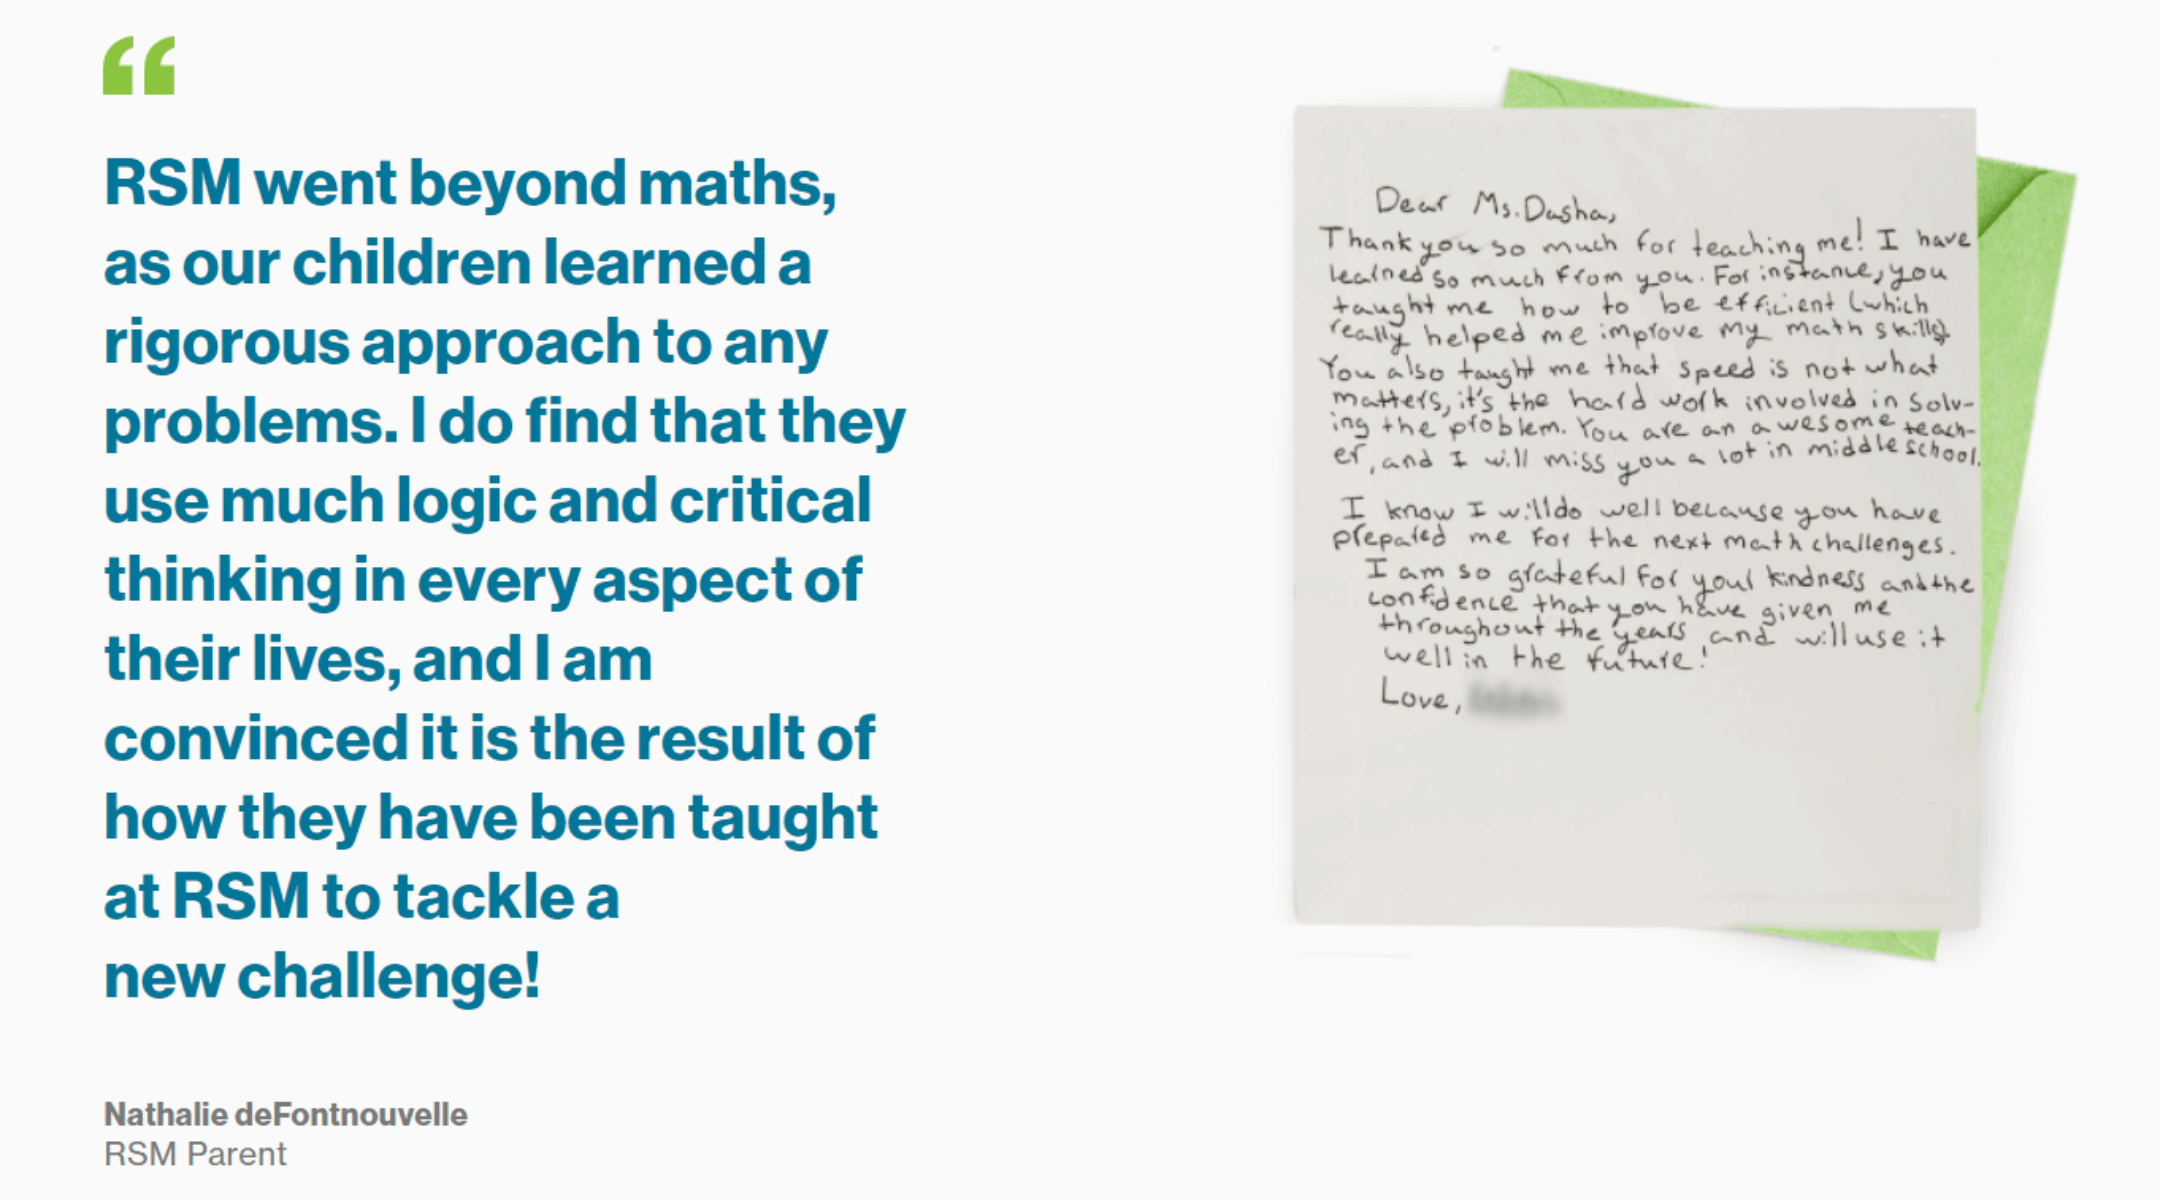 “
RSM went beyond maths,
as our children learned a
rigorous approach to any
problems. I do find that they
use much logic and critical
thinking in every aspect of
their lives, and I am
convinced it is the result of
how they have been taught
at RSM to tackle a
new challenge!
Nathalie deFontnouvelle
RSM Parent
Dear Ms. Dasha,
Thank you so much for teaching me! I have
learned so much from you. For instance, you
taught me how to be efficient (which
really helped me improve my math skills)
You also taught me that speed is not what
matters, it's the hard work involved in solv-
ing the problem. You are an awesome teach-
er, and I will miss you a lot in middle school.
I know I will do well because you have
prepared me for the next math challenges.
I am so grateful for your kindness and the
confidence that you have given me
throughout the years and will use it
well in the future!
Love,